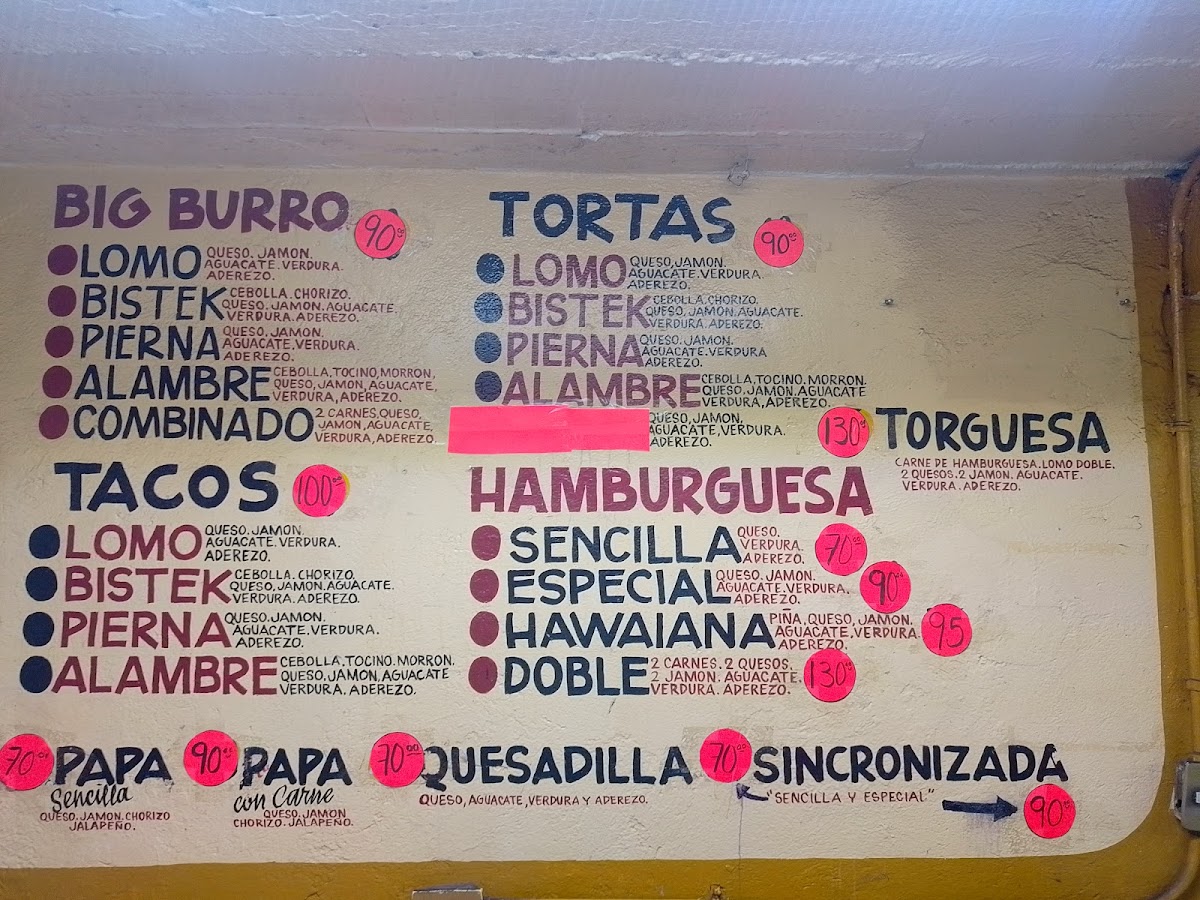 BIG BURRO 90.00
LOMO QUESO. JAMON.
AGUACATE. VERDURA.
ADEREZO.
BISTEK CEBOLLA. CHORIZO.
QUESO. JAMON. AGUACATE.
VERDURA. ADEREZO.
PIERNA QUESO. JAMON.
AGUACATE. VERDURA.
ADEREZO.
ALAMBRE CEBOLLA, TOCINO, MORRON,
QUESO, JAMON, AGUACATE,
VERDURA, ADEREZO.
COMBINADO 2 CARNES, QUESO,
JAMON, AGUACATE,
VERDURA, ADEREZO.
TACOS 100.00
LOMO QUESO. JAMON.
AGUACATE. VERDURA.
ADEREZO.
BISTEK CEBOLLA. CHORIZO.
QUESO, JAMON. AGUACATE.
VERDURA. ADEREZO.
PIERNA QUESO. JAMON.
AGUACATE. VERDURA.
ADEREZO.
ALAMBRE CEBOLLA. TOCINO. MORRON.
QUESO, JAMON, AGUACATE
VERDURA, ADEREZO.
TORTAS 90.00
LOMO QUESO, JAMON.
AGUACATE. VERDURA.
ADEREZO.
BISTEK CEBOLLA. CHORIZO.
QUESO, JAMON. AGUACATE.
VERDURA. ADEREZO.
PIERNA QUESO. JAMON.
AGUACATE. VERDURA
ADEREZO.
ALAMBRE CEBOLLA, TOCINO. MORRON.
QUESO, JAMON. AGUACATE
VERDURA, ADEREZO.
QUESO, JAMON,
AGUACATE, VERDURA.
ADEREZO.
130.00 TORGUESA
CARNE DE HAMBURGUESA. LOMO DOBLE.
2 QUESOS. 2 JAMON. AGUACATE.
VERDURA. ADEREZO.
HAMBURGUESA
SENCILLA QUESO.
VERDURA.
ADEREZO. 70.00
ESPECIAL QUESO. JAMON.
AGUACATE. VERDURA.
ADEREZO. 90.00
HAWAIANA PIÑA, QUESO, JAMON.
AGUACATE, VERDURA.
ADEREZO. 95
DOBLE 2 CARNES. 2 QUESOS.
2 JAMON. AGUACATE.
VERDURA. ADEREZO. 130.00
70.00 PAPA
Sencilla
QUESO. JAMON. CHORIZO
JALAPEÑO.
90.00 PAPA
con Carne
QUESO. JAMON
CHORIZO. JALAPEÑO.
70.00 QUESADILLA
QUESO, AGUACATE, VERDURA Y ADEREZO.
70.00 SINCRONIZADA
"SENCILLA Y ESPECIAL" 90.00